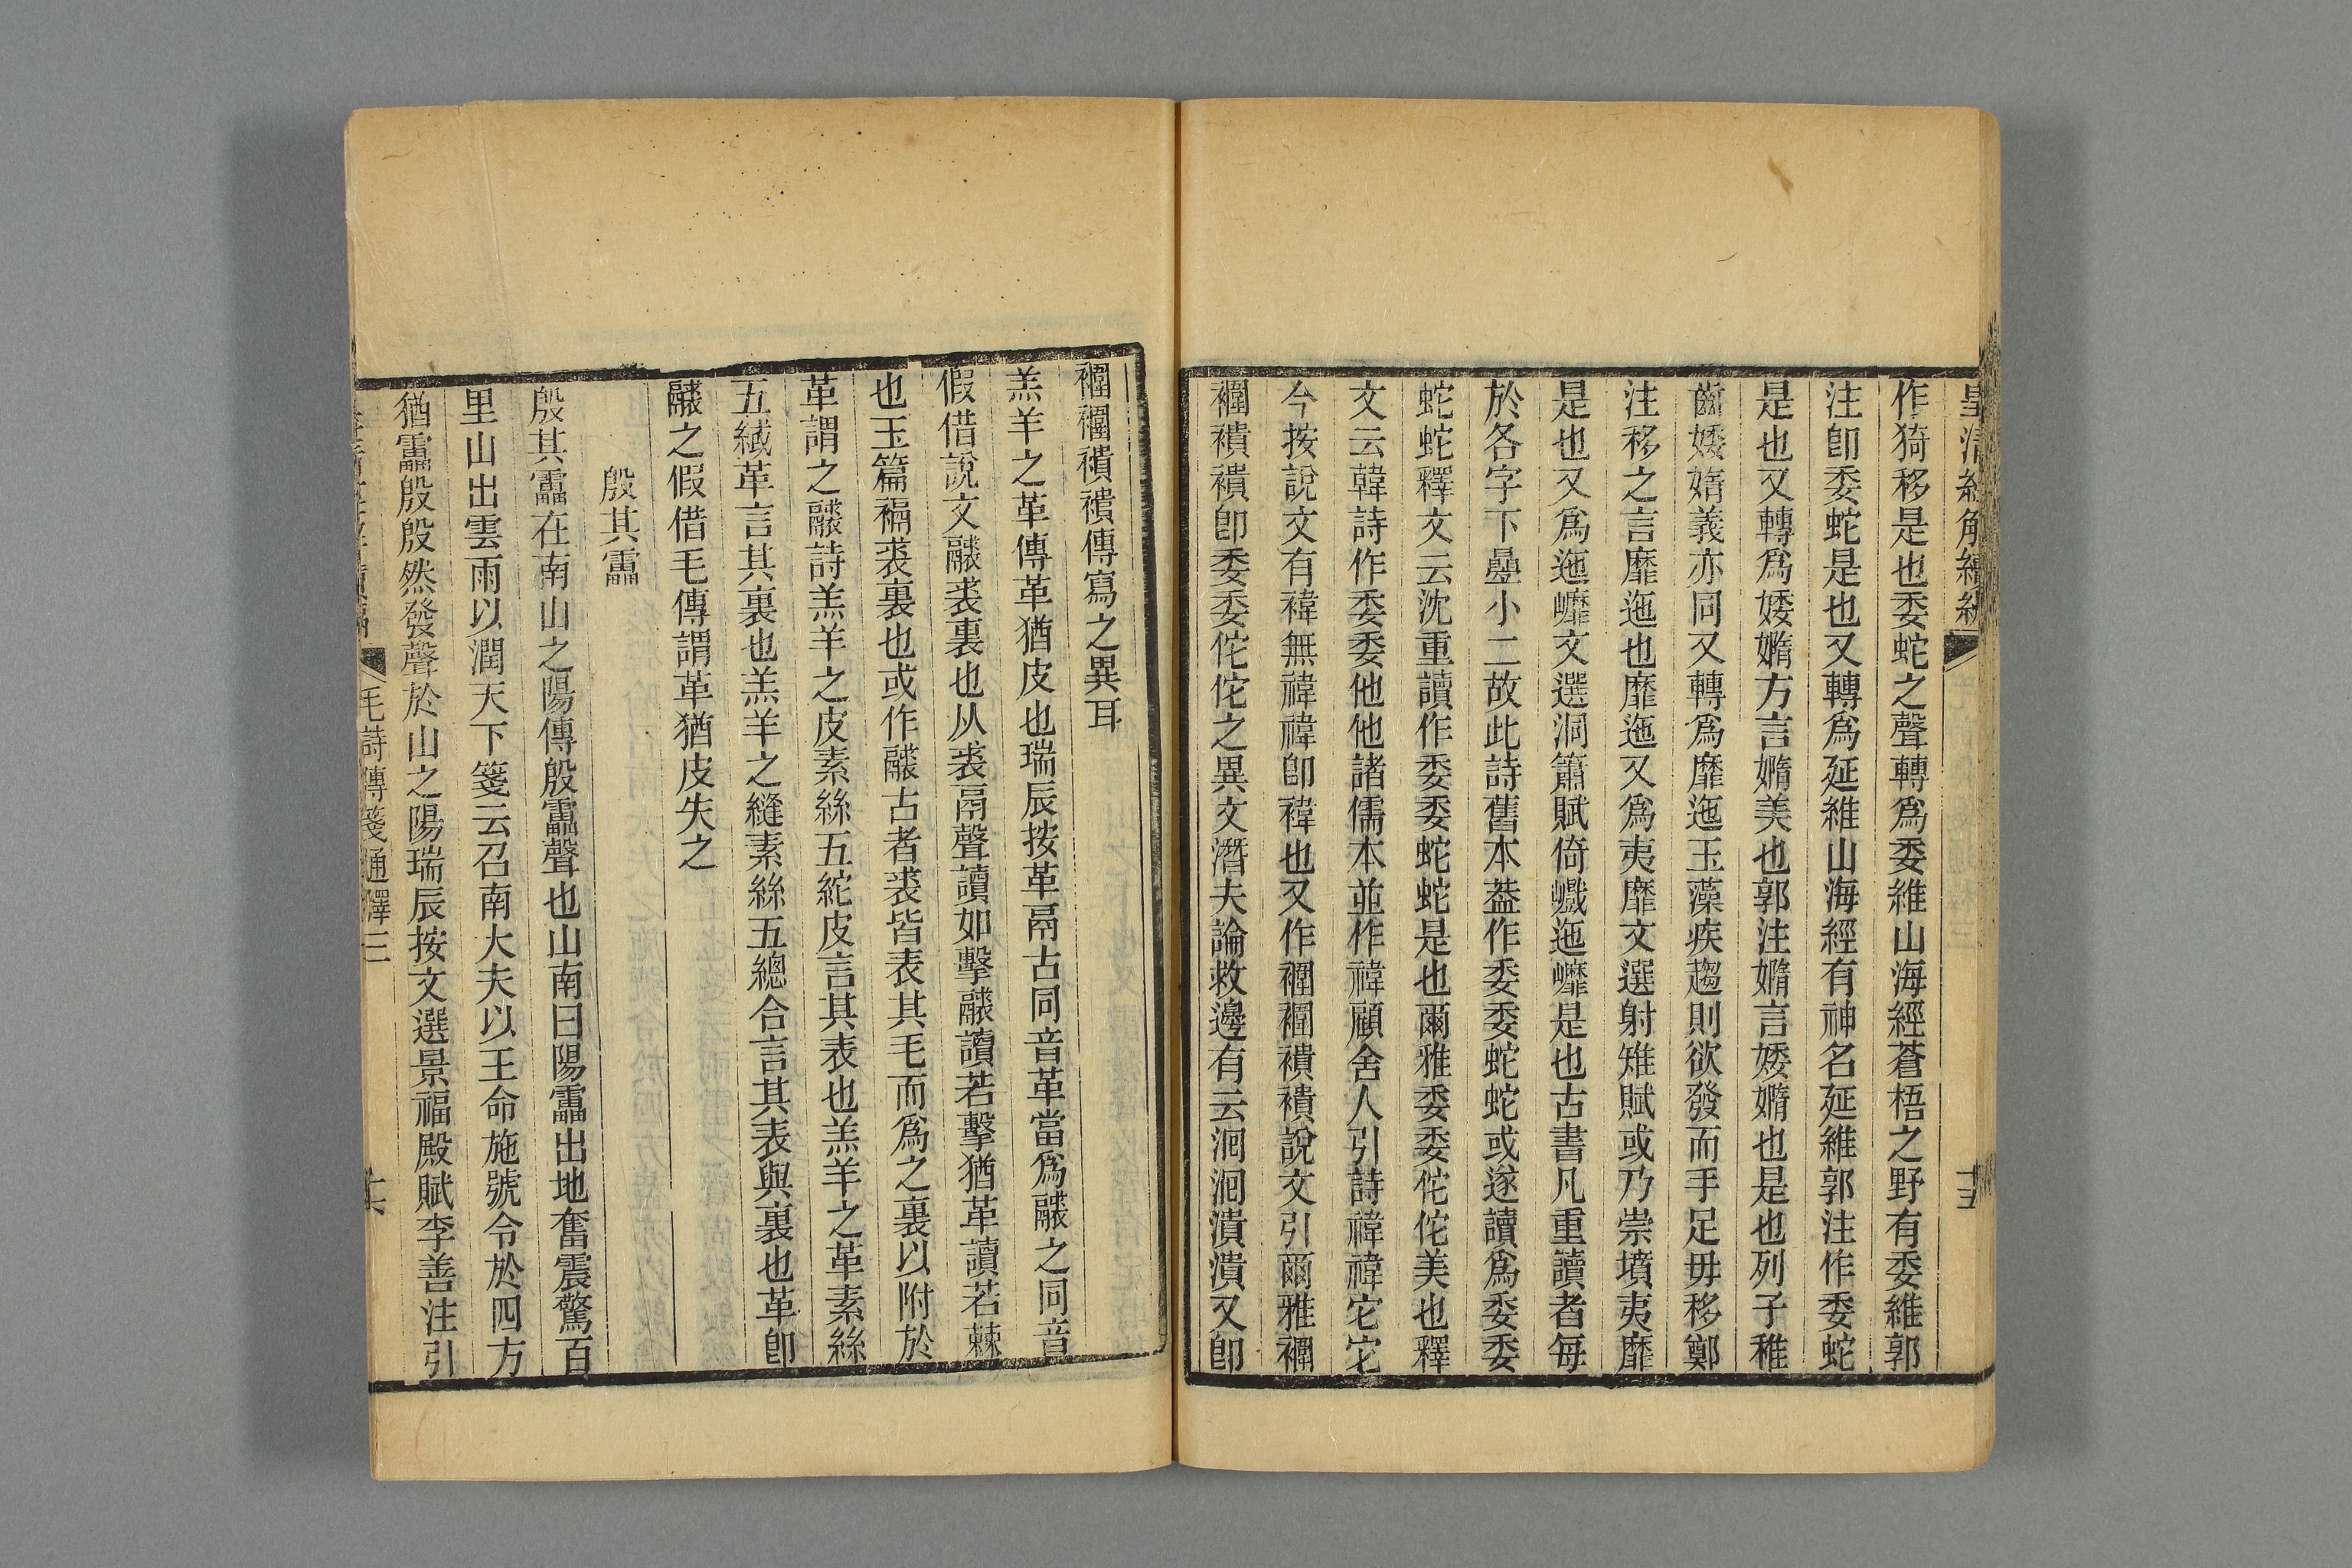 皇清經解續編
十五
作猗移是也委蛇之聲轉爲委維山海經蒼梧之野有委維郭
注卽委蛇是也又轉爲延維山海經有神名延維郭注作委蛇
是也又轉爲婑媠方言媠美也郭注媠言婑媠也是也列子稚
齒婑媠義亦同又轉爲靡迤玉藻疾趨則欲發而手足毋移鄭
注移之言靡迤也靡迤又爲夷靡文選射雉賦或乃崇墳夷靡
是也又爲迤㠧文選洞簫賦倚巇迤㠧是也古書凡重讀者每
於各字下曡小二故此詩舊本葢作委委蛇蛇或遂讀爲委委
蛇蛇釋文云沈重讀作委委蛇蛇是也爾雅委委佗佗美也釋
文云韓詩作委委他他諸儒本並作褘顧舍人引詩褘褘它它
今按說文有褘無禕禕卽褘也又作襴襴襀襀說文引爾雅襴
襴襀襀卽委委佗佗之異文潛夫論救邊有云洄洄潰潰又卽
襴襴襀襀傳寫之異耳
羔羊之革傳革猶皮也瑞辰按革鬲古同音革當爲䙐之同音
假借說文䙐裘裏也从裘鬲聲讀如擊䙐讀若擊猶革讀若棘
也玉篇䙐裘裏也或作䙐古者裘皆表其毛而爲之裏以附於
革謂之䙐詩羔羊之皮素絲五紽皮言其表也羔羊之革素絲
五緎革言其裏也羔羊之縫素絲五總合言其表與裏也革卽
䙐之假借毛傳謂革猶皮失之
殷其靁
殷其靁在南山之陽傳殷靁聲也山南曰陽靁出地奮震驚百
里山出雲雨以潤天下箋云召南大夫以王命施號令於四方
猶靁殷殷然發聲於山之陽瑞辰按文選景福殿賦李善注引
毛詩傳箋通釋三
十六